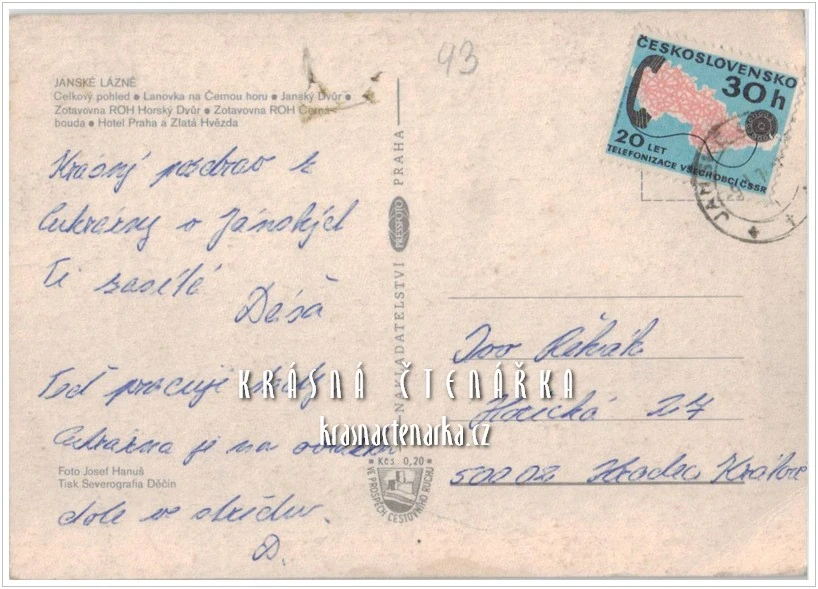 43
JANSKÉ LÁZNĚ
Celkový pohled ● Lanovka na Černou horu ● Janský Dvůr ●
Zotavovna ROH Horský Dvůr ● Zotavovna ROH Černá
bouda ● Hotel Praha a Zlatá Hvězda
Krásný pozdrav z
Cukrárny v Jánských
Ti zasílá
Dáša
Teď pracuji
Cukrárna je na
dole ve středu.
D.
Foto Josef Hanuš
Tisk Severografia Děčín
NAKLADATELSTVÍ PRESSFOTO PRAHA
Kčs 0,20
VE PROSPĚCH CESTOVNÍHO RUCHU
ČESKOSLOVENSKO
30 h
20 LET
TELEFONIZACE VŠECH OBCÍ ČSSR
Ivo
27
500 02 Hradec Králové
KRÁSNÁ ČTENÁŘKA
krasnactenarka.cz